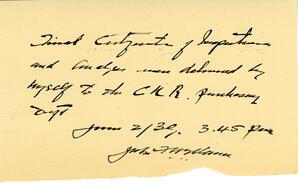 Final Certificate of Inspection
and Analysis were delivered by
myself to the C.N.R. purchasing
Dept
June 2/39, 3.45 pm
John